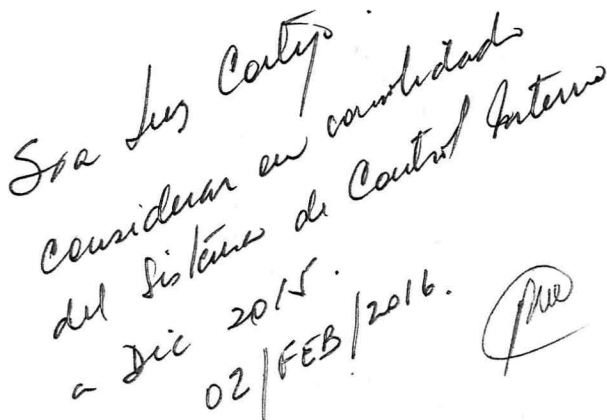 Sra Luz Cortijo.
considerar en consolidado
del Sistema de Control Interno
a Dic 2015.
02/FEB/2016.